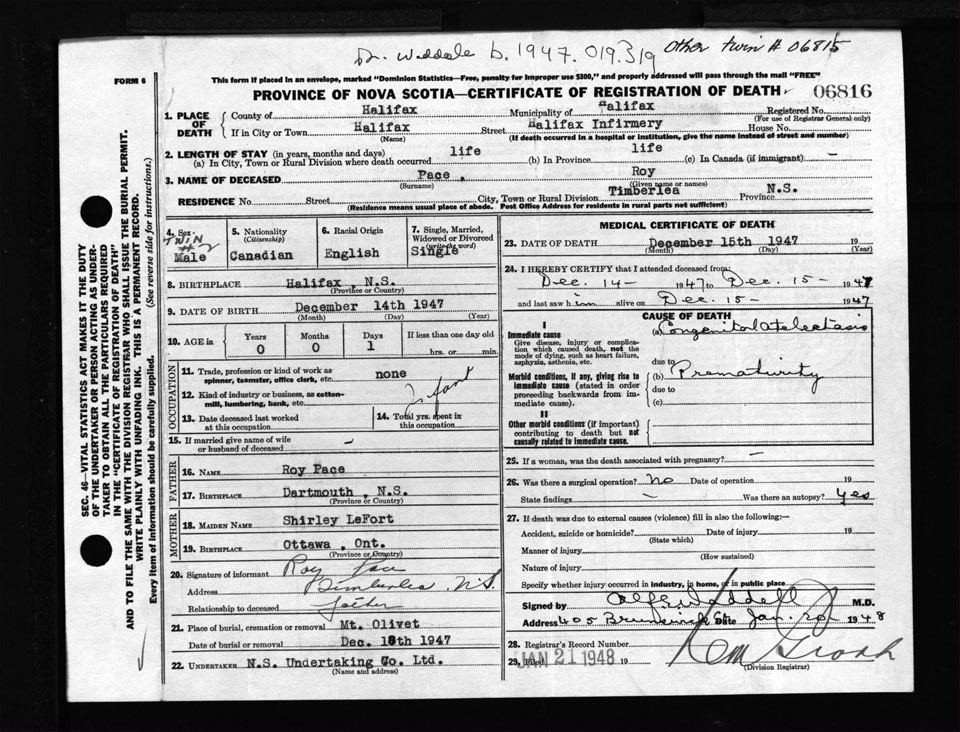 Dr. Waddale b. 1947. 019319 Other twin # 06815
FORM 6
This form if placed in an envelope, marked "Dominion Statistics—Free, penalty for improper use $300," and properly addressed will pass through the mail "FREE"
PROVINCE OF NOVA SCOTIA—CERTIFICATE OF REGISTRATION OF DEATH 06816
1. PLACE OF DEATH
County of Halifax Municipality of Halifax Registered No.
(For use of Registrar General only)
If in City or Town Halifax Street Halifax Infirmery House No.
(Name) (If death occurred in a hospital or institution, give the name instead of street and number)
2. LENGTH OF STAY (in years, months and days)
(a) In City, Town or Rural Division where death occurred life (b) In Province life (c) In Canada (if immigrant) —
3. NAME OF DECEASED Pace , Roy
(Surname) (Given name or names)
RESIDENCE No. Street City, Town or Rural Division Timberlea Province N.S.
(Residence means usual place of abode. Post Office Address for residents in rural parts not sufficient)
4. Sex TWIN #2 Male
5. Nationality (Citizenship) Canadian
6. Racial Origin English
7. Single, Married, Widowed or Divorced (write the word) Single
8. BIRTHPLACE Halifax , N.S.
(Province or Country)
9. DATE OF BIRTH December 14th 1947
(Month) (Day) (Year)
10. AGE in Years Months Days If less than one day old
0 0 1 hrs. or min.
OCCUPATION
11. Trade, profession or kind of work as spinner, teamster, office clerk, etc. none
12. Kind of industry or business, as cotton-mill, lumbering, bank, etc. Infant
13. Date deceased last worked at this occupation
14. Total yrs. spent in this occupation
15. If married give name of wife or husband of deceased —
FATHER
16. NAME Roy Pace
17. BIRTHPLACE Dartmouth , N.S.
(Province or Country)
MOTHER
18. MAIDEN NAME Shirley LeFort
19. BIRTHPLACE Ottawa , Ont.
(Province or Country)
20. Signature of informant Roy Pace
Address Timberlea N.S.
Relationship to deceased father
21. Place of burial, cremation or removal Mt. Olivet
Date of burial or removal Dec. 18th 1947
22. UNDERTAKER N.S. Undertaking Co. Ltd.
(Name and address)
MEDICAL CERTIFICATE OF DEATH
23. DATE OF DEATH December 15th 1947 19
(Month) (Day) (Year)
24. I HEREBY CERTIFY that I attended deceased from:
Dec. 14 - 1947 to Dec. 15 1947
and last saw him alive on Dec. 15 - 1947
CAUSE OF DEATH
I
Immediate cause
Give disease, injury or complication which caused death, not the mode of dying, such as heart failure, asphyxia, asthenia, etc.
(a) Congenital Atelectasis
due to
Morbid conditions, if any, giving rise to immediate cause (stated in order proceeding backwards from immediate cause).
(b) Prematurity
due to
(c)
II
Other morbid conditions (if important) contributing to death but not causally related to immediate cause.
25. If a woman, was the death associated with pregnancy? —
26. Was there a surgical operation? No Date of operation 19
State findings — Was there an autopsy? Yes
27. If death was due to external causes (violence) fill in also the following:—
Accident, suicide or homicide? Date of injury 19
(State which)
Manner of injury
(How sustained)
Nature of injury
Specify whether injury occurred in industry, in home, or in public place
Signed by Alf E Waddell M.D.
Address 405 Brunswick St. Date Jan. 20 1948
28. Registrar's Record Number
29. Filed JAN 21 1948 19
(Division Registrar)
SEC. 46—VITAL STATISTICS ACT MAKES IT THE DUTY
OF THE UNDERTAKER OR PERSON ACTING AS UNDER-
TAKER TO OBTAIN ALL THE PARTICULARS REQUIRED
IN THE "CERTIFICATE OF REGISTRATION OF DEATH"
AND TO FILE THE SAME WITH THE DIVISION REGISTRAR WHO SHALL ISSUE THE BURIAL PERMIT.
WRITE PLAINLY WITH UNFADING INK. THIS IS A PERMANENT RECORD.
Every item of information should be carefully supplied. (See reverse side for instructions.)